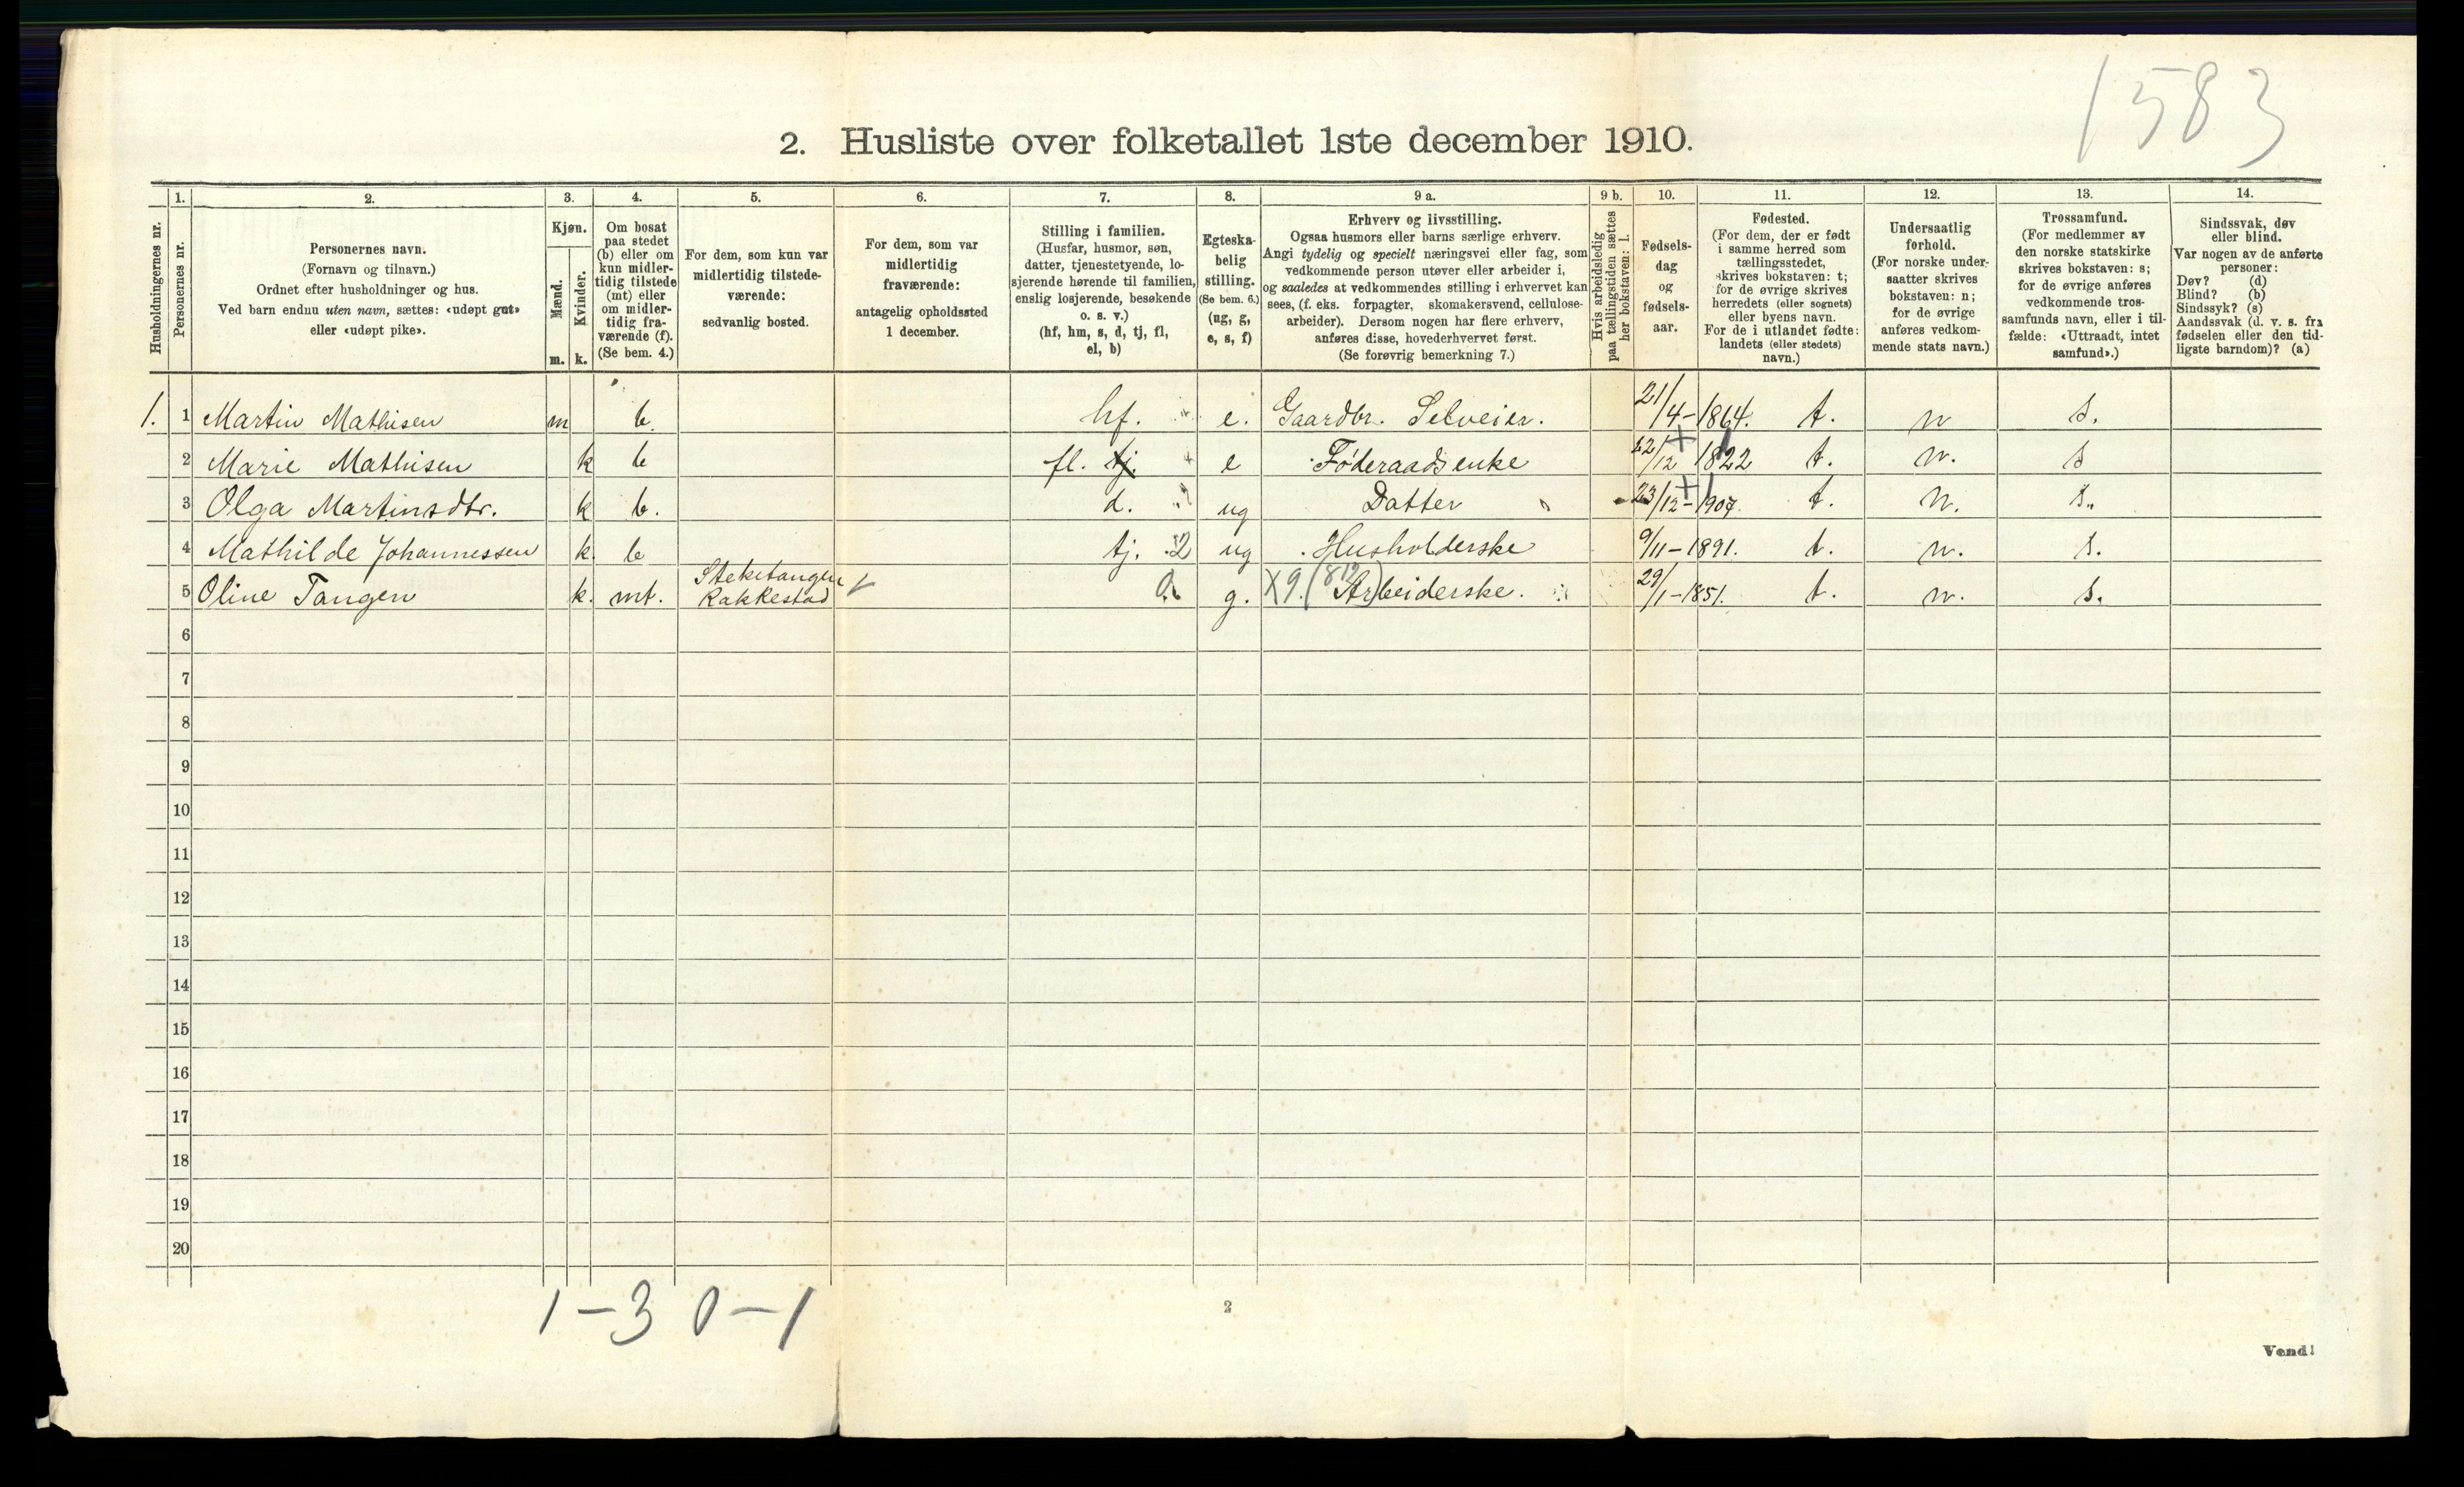 1583
2. Husliste over folketallet 1ste december 1910.
1. 2. 3. 4. 5. 6. 7. 8. 9 a. 9 b. 10. 11. 12. 13. 14.
Husholdningernes nr.
Personernes nr.
Personernes navn.
(Fornavn og tilnavn.)
Ordnet efter husholdninger og hus.
Ved barn endnu uten navn, sættes: «udøpt gut»
eller «udøpt pike».
Kjøn.
Mænd.
Kvinder.
m. k.
Om bosat
paa stedet
(b) eller om
kun midler-
tidig tilstede
(mt) eller
om midler-
tidig fra-
værende (f).
(Se bem. 4.)
For dem, som kun var
midlertidig tilstede-
værende:
sedvanlig bosted.
For dem, som var
midlertidig
fraværende:
antagelig opholdssted
1 december.
Stilling i familien.
(Husfar, husmor, søn,
datter, tjenestetyende, lo-
sjerende hørende til familien,
enslig losjerende, besøkende
o. s. v.)
(hf, hm, s, d, tj, fl,
el, b)
Egteska-
belig
stilling.
(Se bem. 6.)
(ug, g,
e, s, f)
Erhverv og livsstilling.
Ogsaa husmors eller barns særlige erhverv.
Angi tydelig og specielt næringsvei eller fag, som
vedkommende person utøver eller arbeider i,
og saaledes at vedkommendes stilling i erhvervet kan
sees, (f. eks. forpagter, skomakersvend, cellulose-
arbeider). Dersom nogen har flere erhverv,
anføres disse, hovederhvervet først.
(Se forøvrig bemerkning 7.)
Hvis arbeidsledig
paa tællingstiden sættes
her bokstaven: l.
Fødsels-
dag
og
fødsels-
aar.
Fødested.
(For dem, der er født
i samme herred som
tællingsstedet,
skrives bokstaven: t;
for de øvrige skrives
herredets (eller sognets)
eller byens navn.
For de i utlandet fødte:
landets (eller stedets)
navn.)
Undersaatlig
forhold.
(For norske under-
saatter skrives
bokstaven: n;
for de øvrige
anføres vedkom-
mende stats navn.)
Trossamfund.
(For medlemmer av
den norske statskirke
skrives bokstaven: s;
for de øvrige anføres
vedkommende tros-
samfunds navn, eller i til-
fælde: «Uttraadt, intet
samfund».)
Sindssvak, døv
eller blind.
Var nogen av de anførte
personer:
Døv? (d)
Blind? (b)
Sindssyk? (s)
Aandssvak (d. v. s. fra
fødselen eller den tid-
ligste barndom)? (a)
1. 1 Martin Mathisen m b. hf. e. Gaardbr. Selveier. 21/4-1864. t. n s.
2 Marie Mathisen k b fl. tj. e Føderaadsenke 22/12 1822 t. n. s
3 Olga Martinsdtr. k b. d. ug Datter 23/12-1907. t. n. s.
4 Mathilde Johannessen k. b tj. 2 ug Husholderske 9/11-1891. t. n. s.
5 Oline Tangen k. mt. Steketangen
Rakkestad g. X9. (Arbeiderske. 29/1-1851. t. n. s.
6
7
8
9
10
11
12
13
14
15
16
17
18
19
20
1-3 0-1
2
Vend!